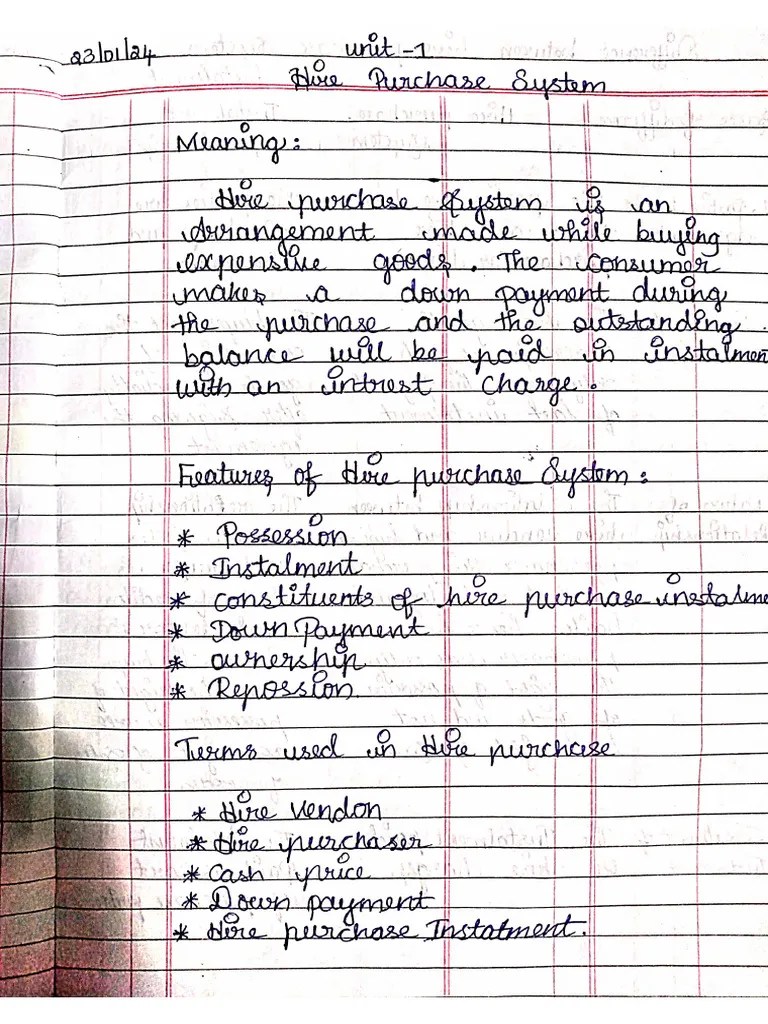 23/01/24
unit -1
Hire Purchase System
Meaning:
Hire purchase System is an
Arrangement made while buying
expensive goods. The consumer
makes a down payment during
the purchase and the outstanding
balance will be paid in instalment
with an intrest charge.
Features of Hire purchase System:
* Possession
* Instalment
* constituents of hire purchase instalme
* Down Payment
* ownership
* Repossion
Terms used in Hire purchase
* Hire Vendon
* Hire purchaser
* Cash price
* Down payment
* Hire purchase Instatment.